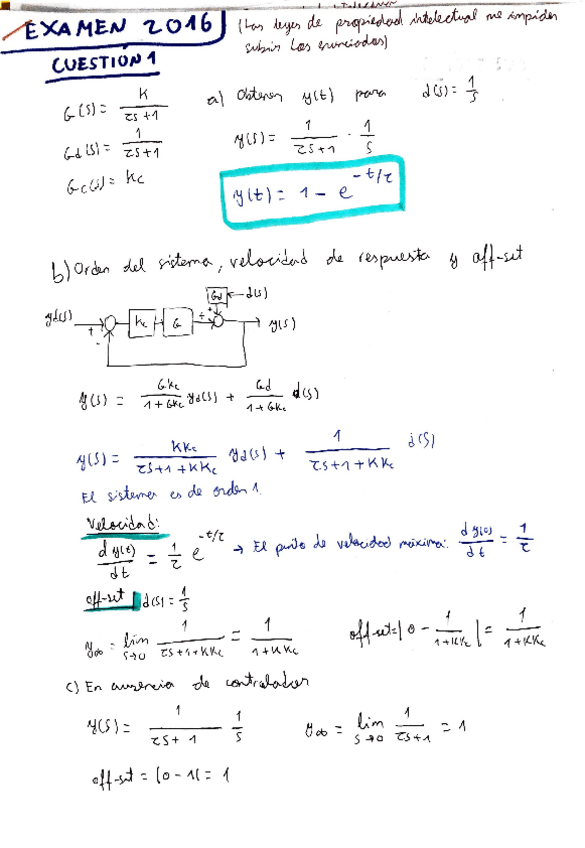 EXAMEN 2016 (Las leyes de propiedad intelectual me impiden
subir los enunciados)
CUESTIÓN 1
G(s) = K / τs+1   a) Obtener y(t) para d(s) = 1/s
Gd(s) = 1 / τs+1   y(s) = 1 / τs+1 · 1/s
Gc(s) = Kc   y(t) = 1 - e^(-t/τ)
b) Orden del sistema, velocidad de respuesta y off-set
Gd d(s)
yd(s) + - Kc G + + y(s)
y(s) = GKc / 1+GKc yd(s) + Gd / 1+GKc d(s)
y(s) = KKc / τs+1+KKc yd(s) + 1 / τs+1+KKc d(s)
El sistema es de orden 1.
Velocidad:
dy(t)/dt = 1/τ e^(-t/τ) → El punto de velocidad máxima: dy(0)/dt = 1/τ
off-set d(s) = 1/s
y∞ = lim s→0 1 / τs+1+KKc = 1 / 1+KKc   off-set = |0 - 1 / 1+KKc| = 1 / 1+KKc
c) En ausencia de controlador
y(s) = 1 / τs+1 1/s   y∞ = lim s→0 1 / τs+1 = 1
off-set = |0-1| = 1